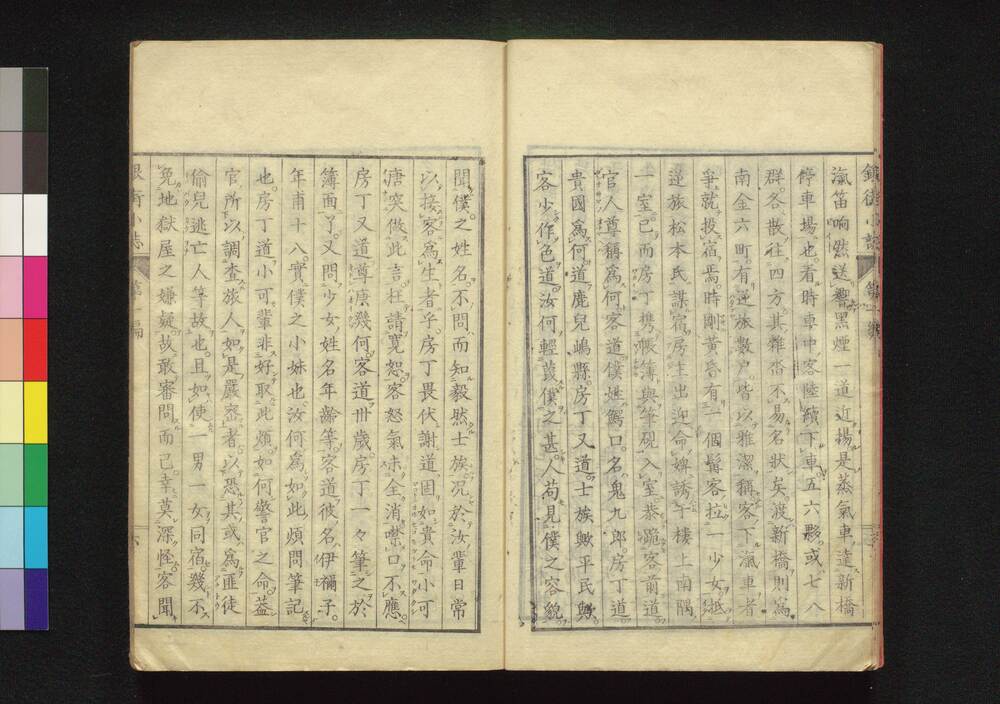 瀛笛响然送響黑煙一道近揚是蒸氣車達新橋
停車場也着時車中客陸續下車五六夥或七八
群各散往四方其雜沓不易名狀矣渡新橋則為
南金六町有逆旅數戸皆以雅潔稱客下瀛車者
爭就投宿焉時剛黃昏有一個髯客拉一少女
逆旅松本氏謀宿房主出迎命婢誘于楼上南隅
一室已而房丁携帳簿與筆硯入室恭跪客前道
官人尊稱為何客道僕姓鰐口名鬼九郎房丁道
貴國為何道鹿兒嶋縣房丁又道士族歟平民歟
客少作色道汝何輕蔑僕之甚人苟見僕之容貌
聞僕之姓名不問而知毅然士族况於汝輩日常
以接客為生者乎房丁畏伏謝道固如貴命小可
唐突做此言枉請寛恕客怒氣未全消噤口不應
房丁又道尊庚幾何客道丗歳房丁一々筆之於
簿面了又問少女姓名年齡等客道彼名伊禰子
年甫十八實僕之小妹也汝何為如此煩問筆記
也房丁道小可輩非好取此煩如何警官之命蓋
官所以調査旅人如是嚴密者以恐其或為匪徒
偷兒逃亡人等故也且如使一男一女同宿幾不
免地獄屋之嫌疑故敢審問而已幸莫深怪客聞
銀街小誌